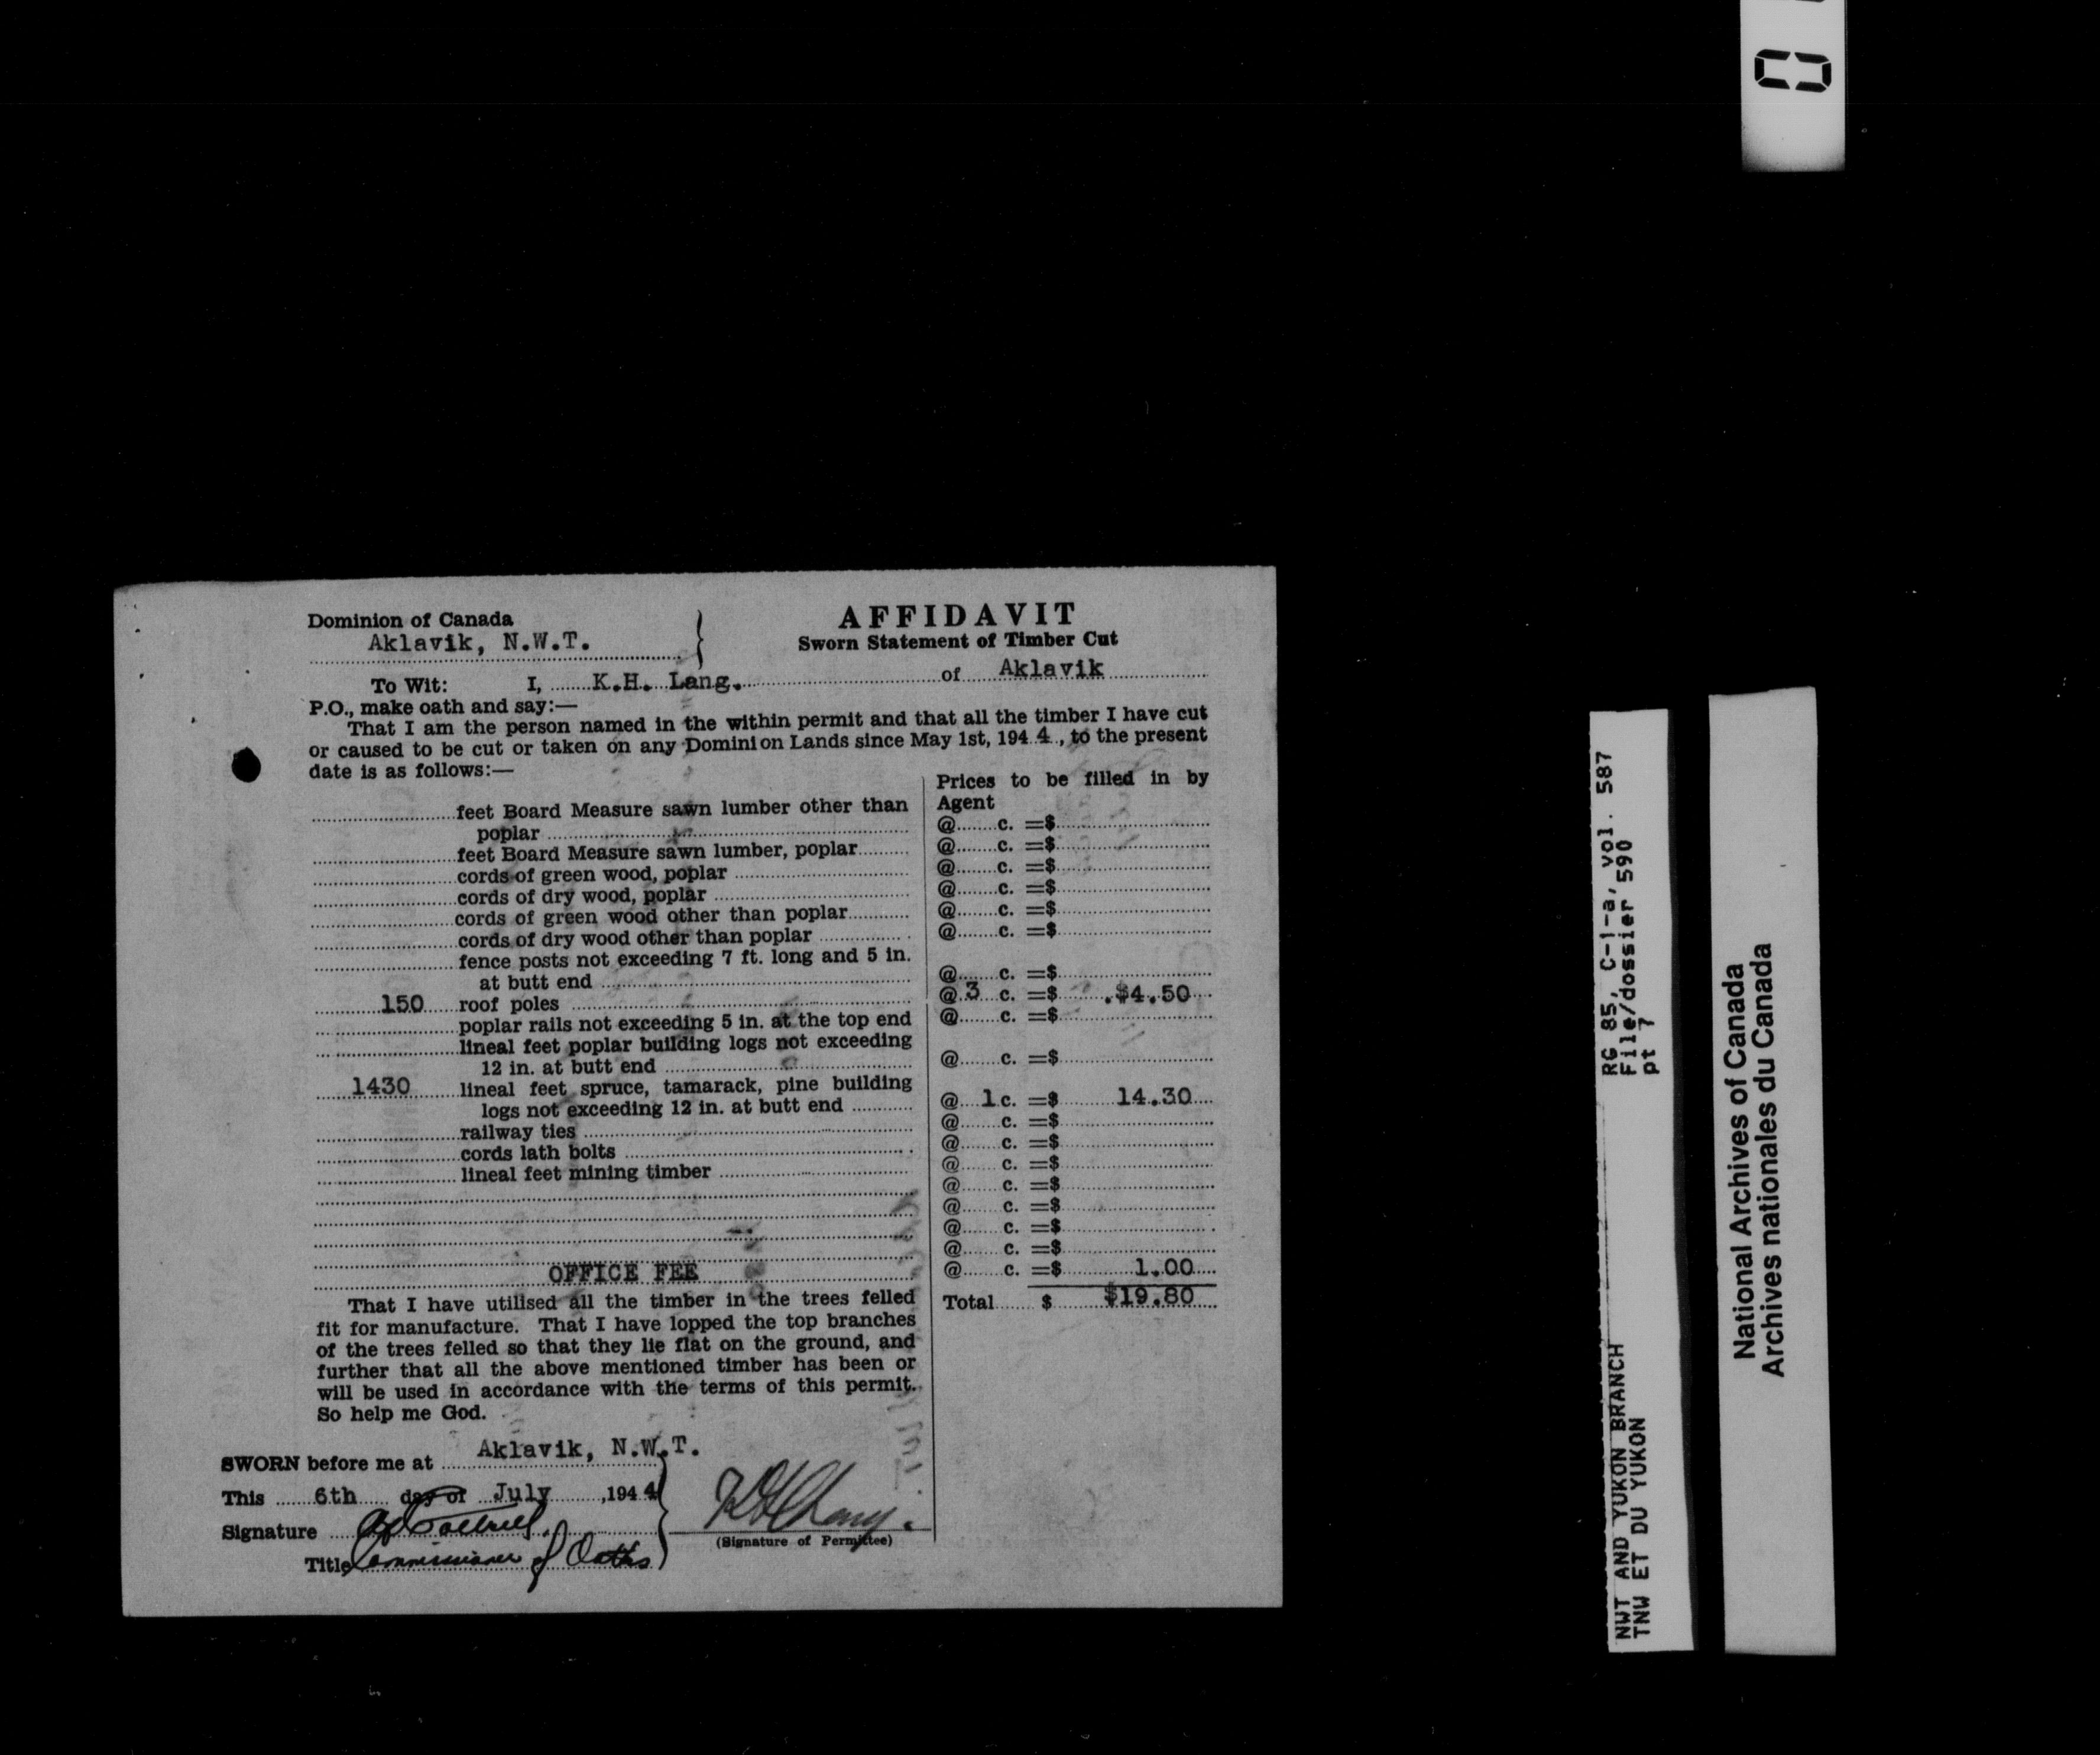 Dominion of Canada
Aklavik, N.W.T.
AFFIDAVIT
Sworn Statement of Timber Cut
To Wit: I, K.H. Lang. of Aklavik
P.O., make oath and say:—
That I am the person named in the within permit and that all the timber I have cut
or caused to be cut or taken on any Dominion Lands since May 1st, 194 4, to the present
date is as follows:—
Prices to be filled in by
Agent
feet Board Measure sawn lumber other than
poplar @ c. =$
feet Board Measure sawn lumber, poplar @ c. =$
cords of green wood, poplar @ c. =$
cords of dry wood, poplar @ c. =$
cords of green wood other than poplar @ c. =$
cords of dry wood other than poplar @ c. =$
fence posts not exceeding 7 ft. long and 5 in.
at butt end @ c. =$
150 roof poles @ 3 c. =$ $4.50
poplar rails not exceeding 5 in. at the top end @ c. =$
lineal feet poplar building logs not exceeding
12 in. at butt end @ c. =$
1430 lineal feet spruce, tamarack, pine building
logs not exceeding 12 in. at butt end @ 1 c. =$ 14.30
railway ties @ c. =$
cords lath bolts @ c. =$
lineal feet mining timber @ c. =$
@ c. =$
@ c. =$
@ c. =$
@ c. =$
OFFICE FEE @ c. =$ 1.00
Total $ $19.80
That I have utilised all the timber in the trees felled
fit for manufacture. That I have lopped the top branches
of the trees felled so that they lie flat on the ground, and
further that all the above mentioned timber has been or
will be used in accordance with the terms of this permit.
So help me God.
SWORN before me at Aklavik, N.W.T.
This 6th day of July, 194 4
Signature
Title Commissioner of Oaths
K H Lang.
(Signature of Permittee)
RG 85, C-1-a, vol. 587
File/dossier 590
pt 7
NWT AND YUKON BRANCH
TNW ET DU YUKON
National Archives of Canada
Archives nationales du Canada